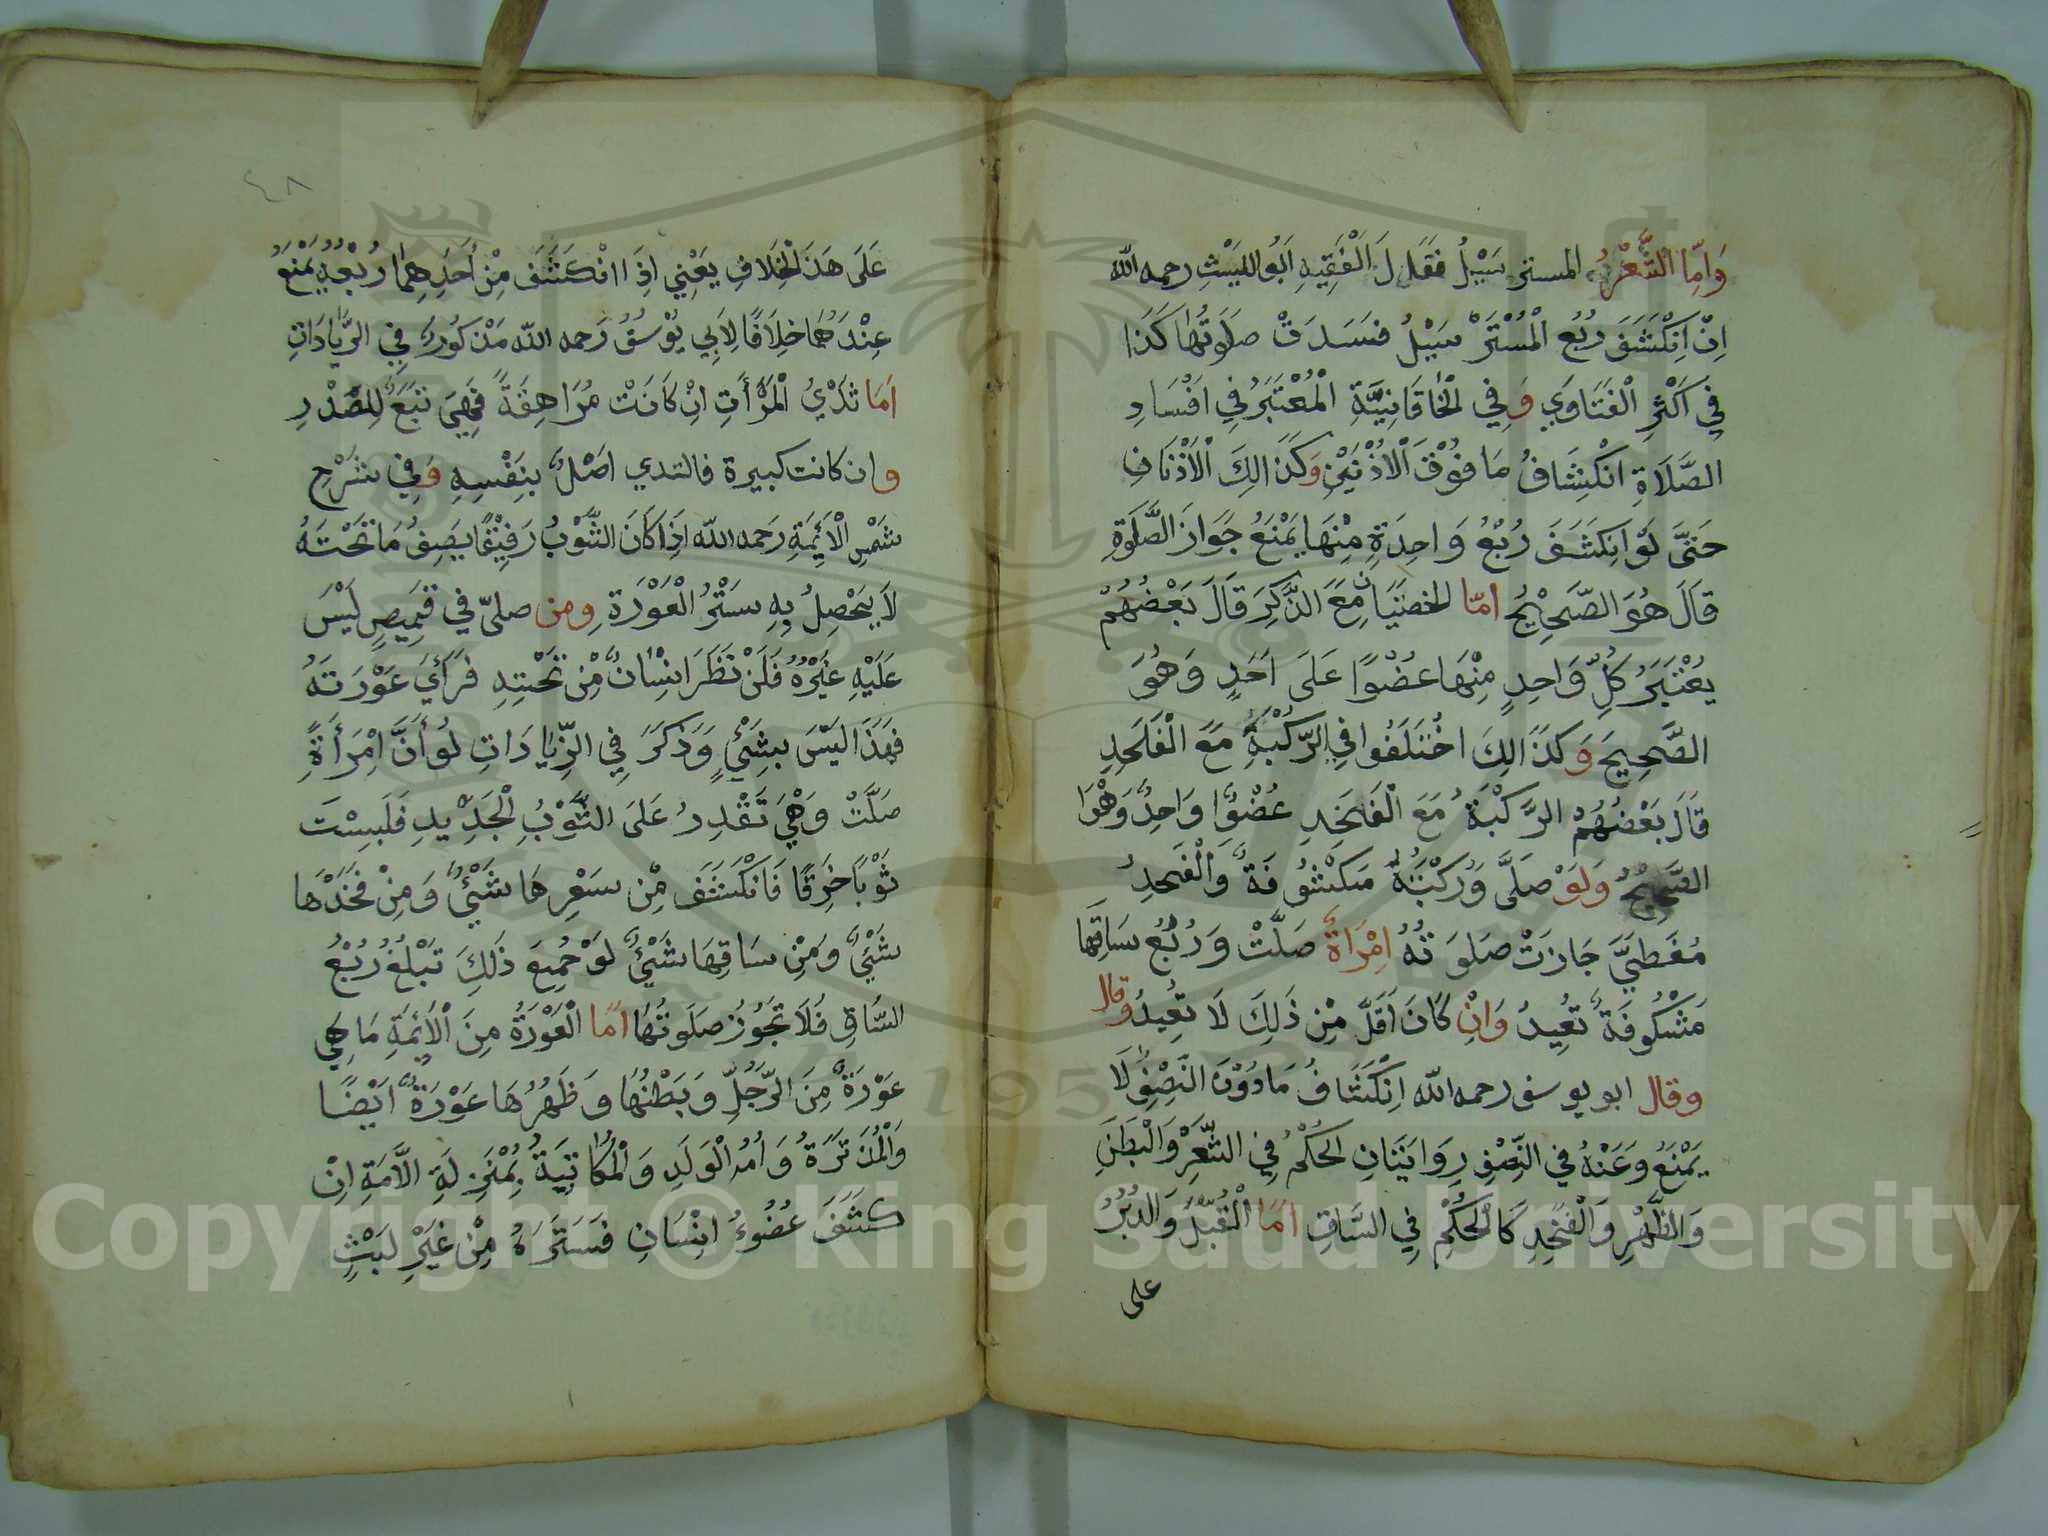 وَاَمَّا الشَّعْرُ المستر سَبِيْلُ فقَلَ لَ الْفَقِيهِ اَبُو اللَيْثِ رحمه الله
اِنْ اِنْكَشَفَ رُبُع الْمُسْتَرْ سَبِيْلُ فسَسَدَتْ صَلَوَتُهَا كَذَا
فِي اَكْثَرِ الْفَتَاوِي وَفِي الْخَاقَانِيَّةِ الْمُعْتَبَرُ فِي اَفْسَادِ
الصَّلَاةِ انْكِشَافُ مَا فَوْقَ الْاُذْنَيْنِ وَكَذَالِكَ الْاُذْنَانِ
حَتَّى لَوْ انكَشَفَ رُبْعُ وَاحِدَةٍ مِنْهَا يَمْنَعُ جَوَازَ الصَّلَوةِ
قَالَ هُوَ الصَّحِيْحُ امّا الخصيَانِ مَعَ الذَّكَرِ قَالَ بَعْضُهُمْ
يعْتَبَرُ كُلِّ وَاحِدٍ مِنْهَا عُضْوًا عَلَى اَحَدٍ وَهُوَ
الصَّحِيحَ وَكذَالِكَ اخْتَلَفُوا فِي الرّكْبَةِ مَعَ الْفَخِدِ
قَالَ بَعْضُهُمْ الرّكْبَةُ مَعَ الْفَخَدِ عُضْوًا وَاحِدٌ وَهْوَا
الصَّحِيْحُ وَلَوْ صَلَّى وَرُكْبَتُهُ مَكْشُوفَةٌ وَالْفَخِدُ
مُغَطِيَّ جَازَتْ صَلَوَتُهُ اِمْرَاةٌ صَلَّتْ وَرُبْعُ سَاقِهَا
مَشْكُوفَةٌ تُعِيدُ وَانْ كَانَ اَقَلَّ مِنْ ذَلِكَ لَا تُعِيدُ وقال
وقال ابو يوسف رحمه الله اِنْكَشَافُ مَا دُوْنَ النِّصْفِ لَا
يَمْنَعُ وَعَنْهُ فِي النِّصْفِ رِوَايَتَانِ الحُكْمُ فِي الشَّعَرْ وَالْبَطَنِ
وَالظَّهْرِ وَالْفَخِدِ كَالْحُكْمِ فِي السَّاقِ امَّا الْقُبُلُ وَالدُبُرُ
على
٤٨
عَلَى هَذَ الْخِلَافِ يَعْنِي اِذَا انْكَشَفَ مِنْ أَحَدِهِمَا رُبْعُهُ يَمْنَعُ
عِنْدَهُمَا خِلَافًا لِاَبِي يُوْسُفْ رَحمه الله مَذْكُورَةٌ فِي الزِّيَادَاتِ
اَمَا ثَدْيُ الْمَرْأَتِ اِنْ كَانَتْ مُرَاهِقَةً فَهِيَ تَبَعٌ لِلصَّدْرِ
وان كانت كبيرة فالثدي اصْلٌ بِنَفْسِهِ وَفِي شَرْحِ
شَمْسِ الْأَئِمَةِ رَحمه الله اَذِا كَانَ الثَّوْبُ رَقِيْقًا يَصِفُ مَا تَحْتَهُ
لَا يَحْصِلُ بِهِ سَتْرُ الْعَوْرَةِ ومن صلىّ في قَمِيصٍ لَيْسَ
عَلَيْهِ غَيْرُهُ فَلَنْ نَظَرَ انْسِانٌ مِّنْ تَحْتِهِ فَرَأَيَ عَوْرَتَهُ
فهَذَا لَيْسَ بِشَيْءٍ وَذَكَرَ فِي الزّيَادَاتِ لَوْ أَنَّ امْرَأَةً
صَلَّتْ وَهْيَ تَقْدِرُ عَلَى الثَّوْبِ الْجَدِّيدِ فَلَبِسْتَ
ثَوْبًا خِرَقًا فَانْكَشَفَ مِّنْ سَعْرِهَا شَيْءٌ وَمِنْ فَخَذْهَا
شَيْءٌ وَمِنْ سَاقِهَا شَيْءٌ لَوْ جُمِعَ ذَلِكَ تَبْلُغُ رُبْعُ
السَّاقِ فَلَا تَجَوُزُ صَلَوتُهَا امَّا الْعَوْرَةُ مِنَ الْأَئِمَةِ مَا هِي
عَوْرَةٌ مِّنَ الرَّجُلِ وَبَطْنُهَا وَظَهْرُهَا عَوْرَةٌ اَيْضًا
وَالْمُدَتَرَةُ وَاُمُ الْوَلَدِ وَالْمُكَاتِبَةُ بِمْنَزِلَةِ الَّامَةِ اِنْ
كَشَفَ عُضْوُ اِنْسَانِ فَسَتَرَاهُ مِنْ غَيْرِ لَبْثٍ
Copyright © King Saud University